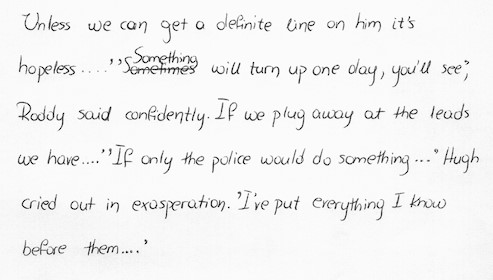 Unless we can get a definite line on him it's
hopeless ....'' Something will turn up one day, you'll see",
Roddy said confidently. If we plug away at the leads
we have....'' If only the police would do something..." Hugh
cried out in exasperation. 'I've put everything I know
before them....'